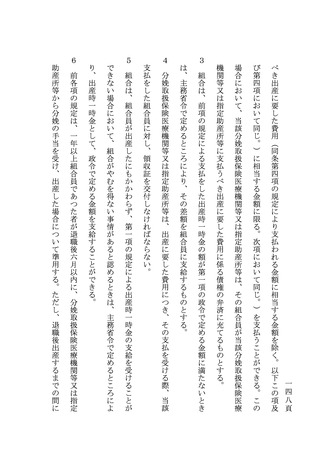 一四八頁
べき出産に要した費用（同条第四項の規定により支払われる金額に相当する金額を除く。以下この項及
び第四項において同じ。）に相当する金額に限る。次項において同じ。）を支払うことができる。この
場合において、当該分娩取扱保険医療機関等又は指定助産所等は、その組合員が当該分娩取扱保険医療
機関等又は指定助産所等に支払うべき出産に要した費用に係る債権の弁済に充てるものとする。
３　組合は、前項の規定による支払をした出産時一時金の額が第一項の政令で定める金額に満たないとき
は、主務省令で定めるところにより、その差額を組合員に支給するものとする。
４　分娩取扱保険医療機関等又は指定助産所等は、出産に要した費用につき、その支払を受ける際、当該
支払をした組合員に対し、領収証を交付しなければならない。
５　組合は、組合員が出産したにもかかわらず、第一項の規定による出産時一時金の支給を受けることが
できない場合において、組合がやむを得ない事情があると認めるときは、主務省令で定めるところによ
り、出産時一時金として、政令で定める金額を支給することができる。
６　前各項の規定は、一年以上組合員であつた者が退職後六月以内に、分娩取扱保険医療機関等又は指定
助産所等から分娩の手当を受け、出産した場合について準用する。ただし、退職後出産するまでの間に